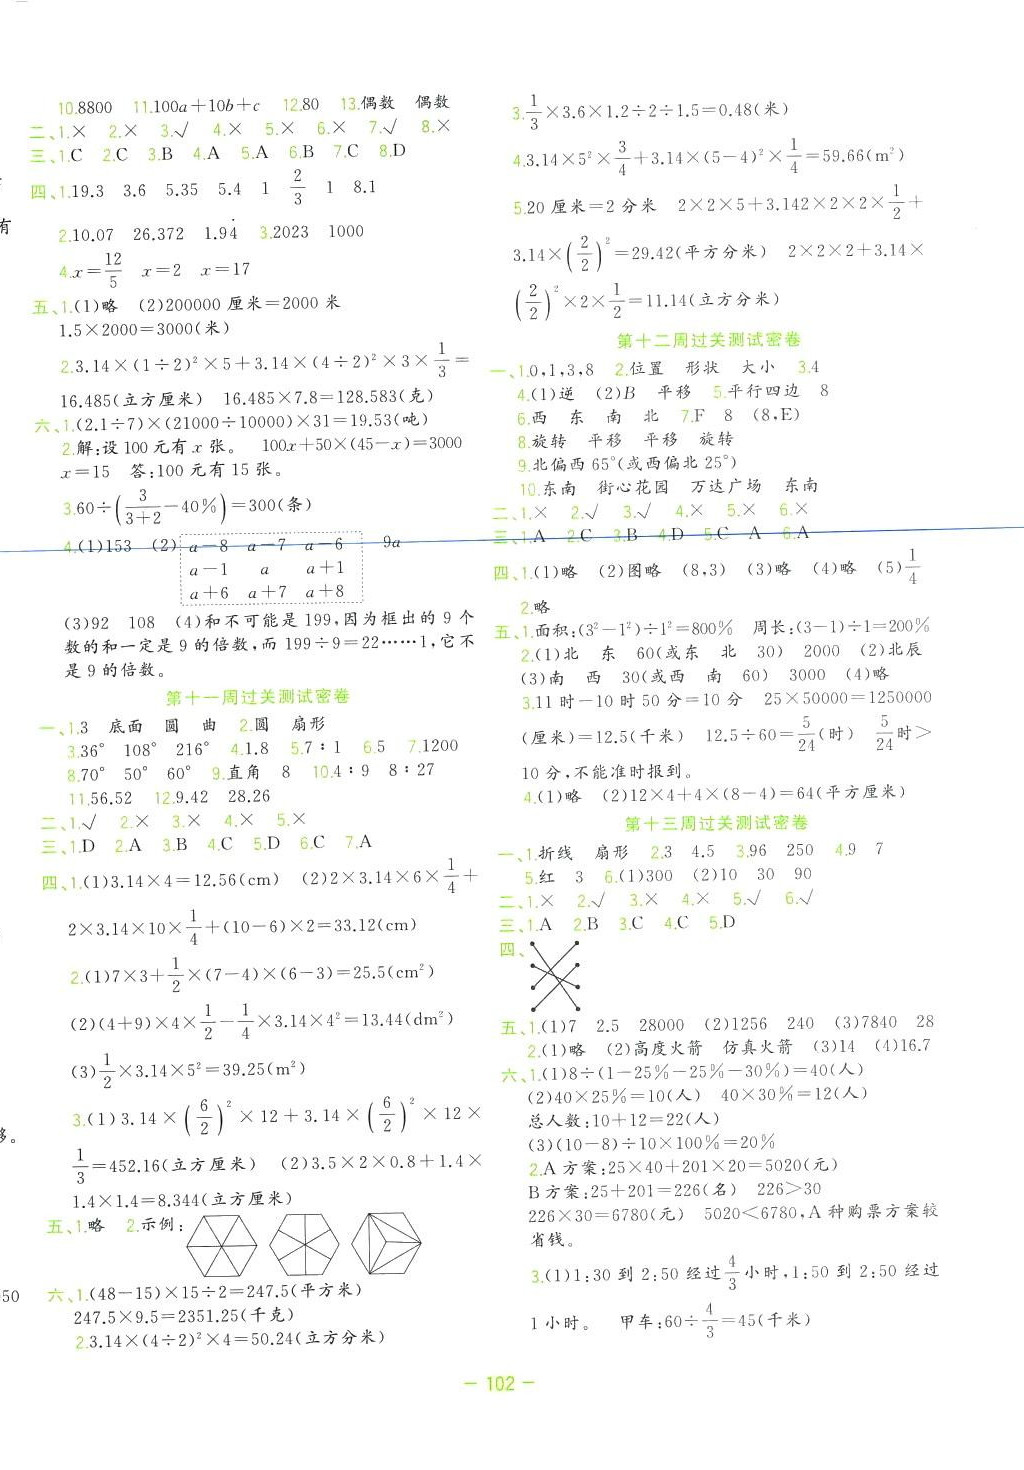 10.8800 11.100a+10b+c 12.80 13.偶数 偶数
二、1.× 2.× 3.√ 4.× 5.× 6.× 7.√ 8.×
三、1.C 2.C 3.B 4.A 5.A 6.B 7.C 8.D
四、1.19.3 3.6 5.35 5.4 1 2/3 1 8.1
有
2.10.07 26.372 1.94 3.2023 1000
4.x=12/5 x=2 x=17
五、1.(1)略 (2)200000 厘米=2000 米
1.5×2000=3000(米)
2.3.14×(1÷2)²×5+3.14×(4÷2)²×3×1/3=
16.485(立方厘米) 16.485×7.8=128.583(克)
六、1.(2.1÷7)×(21000÷10000)×31=19.53(吨)
2.解:设 100 元有 x 张。 100x+50×(45-x)=3000
x=15 答:100 元有 15 张。
3.60÷(3/(3+2)-40%)=300(条)
4.(1)153 (2) a-8 a-7 a-6 9a
a-1 a a+1
a+6 a+7 a+8
(3)92 108 (4)和不可能是 199,因为框出的 9 个
数的和一定是 9 的倍数,而 199÷9=22……1,它不
是 9 的倍数。
第十一周过关测试密卷
一、1.3 底面 圆 曲 2.圆 扇形
3.36° 108° 216° 4.1.8 5.7∶1 6.5 7.1200
8.70° 50° 60° 9.直角 8 10.4∶9 8∶27
11.56.52 12.9.42 28.26
二、1.√ 2.× 3.× 4.× 5.×
三、1.D 2.A 3.B 4.C 5.D 6.C 7.A
四、1.(1)3.14×4=12.56(cm) (2)2×3.14×6×1/4+
2×3.14×10×1/4+(10-6)×2=33.12(cm)
2.(1)7×3+1/2×(7-4)×(6-3)=25.5(cm²)
(2)(4+9)×4×1/2-1/4×3.14×4²=13.44(dm²)
(3)1/2×3.14×5²=39.25(m²)
3.(1)3.14×(6/2)²×12+3.14×(6/2)²×12×
1/3=452.16(立方厘米) (2)3.5×2×0.8+1.4×
1.4×1.4=8.344(立方厘米)
五、1.略 2.示例:
050
六、1.(48-15)×15÷2=247.5(平方米)
247.5×9.5=2351.25(千克)
2.3.14×(4÷2)²×4=50.24(立方分米)
3.1/3×3.6×1.2÷2÷1.5=0.48(米)
4.3.14×5²×3/4+3.14×(5-4)²×1/4=59.66(m²)
5.20 厘米=2 分米 2×2×5+3.142×2×2×1/2+
3.14×(2/2)²=29.42(平方分米) 2×2×2+3.14×
(2/2)²×2×1/2=11.14(立方分米)
第十二周过关测试密卷
一、1.0,1,3,8 2.位置 形状 大小 3.4
4.(1)逆 (2)B 平移 5.平行四边 8
6.西 东 南 北 7.F 8 (8,E)
8.旋转 平移 平移 旋转
9.北偏西 65°(或西偏北 25°)
10.东南 街心花园 万达广场 东南
二、1.× 2.√ 3.√ 4.× 5.× 6.×
三、1.A 2.C 3.B 4.D 5.C A 6.A
四、1.(1)略 (2)图略 (8,3) (3)略 (4)略 (5)1/4
2.略
五、1.面积:(3²-1²)÷1²=800% 周长:(3-1)÷1=200%
2.(1)北 东 60(或东 北 30) 2000 (2)北辰
(3)南 西 30(或西 南 60) 3000 (4)略
3.11 时-10 时 50 分=10 分 25×50000=1250000
(厘米)=12.5(千米) 12.5÷60=5/24(时) 5/24时>
10 分,不能准时报到。
4.(1)略 (2)12×4+4×(8-4)=64(平方厘米)
第十三周过关测试密卷
一、1.折线 扇形 2.3 4.5 3.96 250 4.9 7
5.红 3 6.(1)300 (2)10 30 90
二、1.× 2.√ 3.× 4.× 5.√ 6.√
三、1.A 2.B 3.C 4.C 5.D
四、
五、1.(1)7 2.5 28000 (2)1256 240 (3)7840 28
2.(1)略 (2)高度火箭 仿真火箭 (3)14 (4)16.7
六、1.(1)8÷(1-25%-25%-30%)=40(人)
(2)40×25%=10(人) 40×30%=12(人)
总人数:10+12=22(人)
(3)(10-8)÷10×100%=20%
2.A 方案:25×40+201×20=5020(元)
B 方案:25+201=226(名) 226>30
226×30=6780(元) 5020<6780,A 种购票方案较
省钱。
3.(1)1:30 到 2:50 经过4/3小时,1:50 到 2:50 经过
1 小时。 甲车:60÷4/3=45(千米)
— 102 —